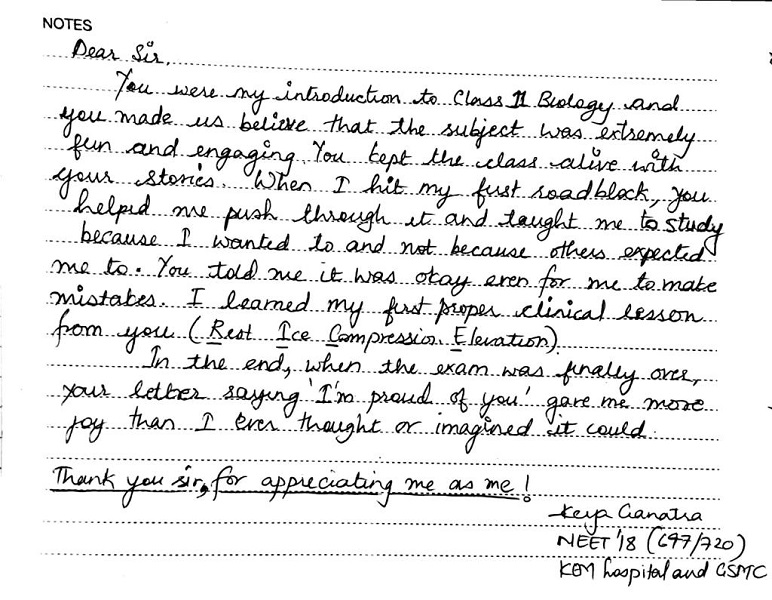 NOTES
Dear Sir,
You were my introduction to Class 11 Biology and
you made us believe that the subject was extremely
fun and engaging. You kept the class alive with
your stories. When I hit my first roadblock, you
helped me push through it and taught me to study
because I wanted to and not because others expected
me to. You told me it was okay even for me to make
mistakes. I learned my first proper clinical lesson
from you (Rest Ice Compression Elevation).
In the end, when the exam was finally over,
your letter saying 'I'm proud of you' gave me more
joy than I ever thought or imagined it could.
Thank you sir, for appreciating me as me!
Keya Ganatra
NEET '18 (697/720)
KEM hospital and GSMC